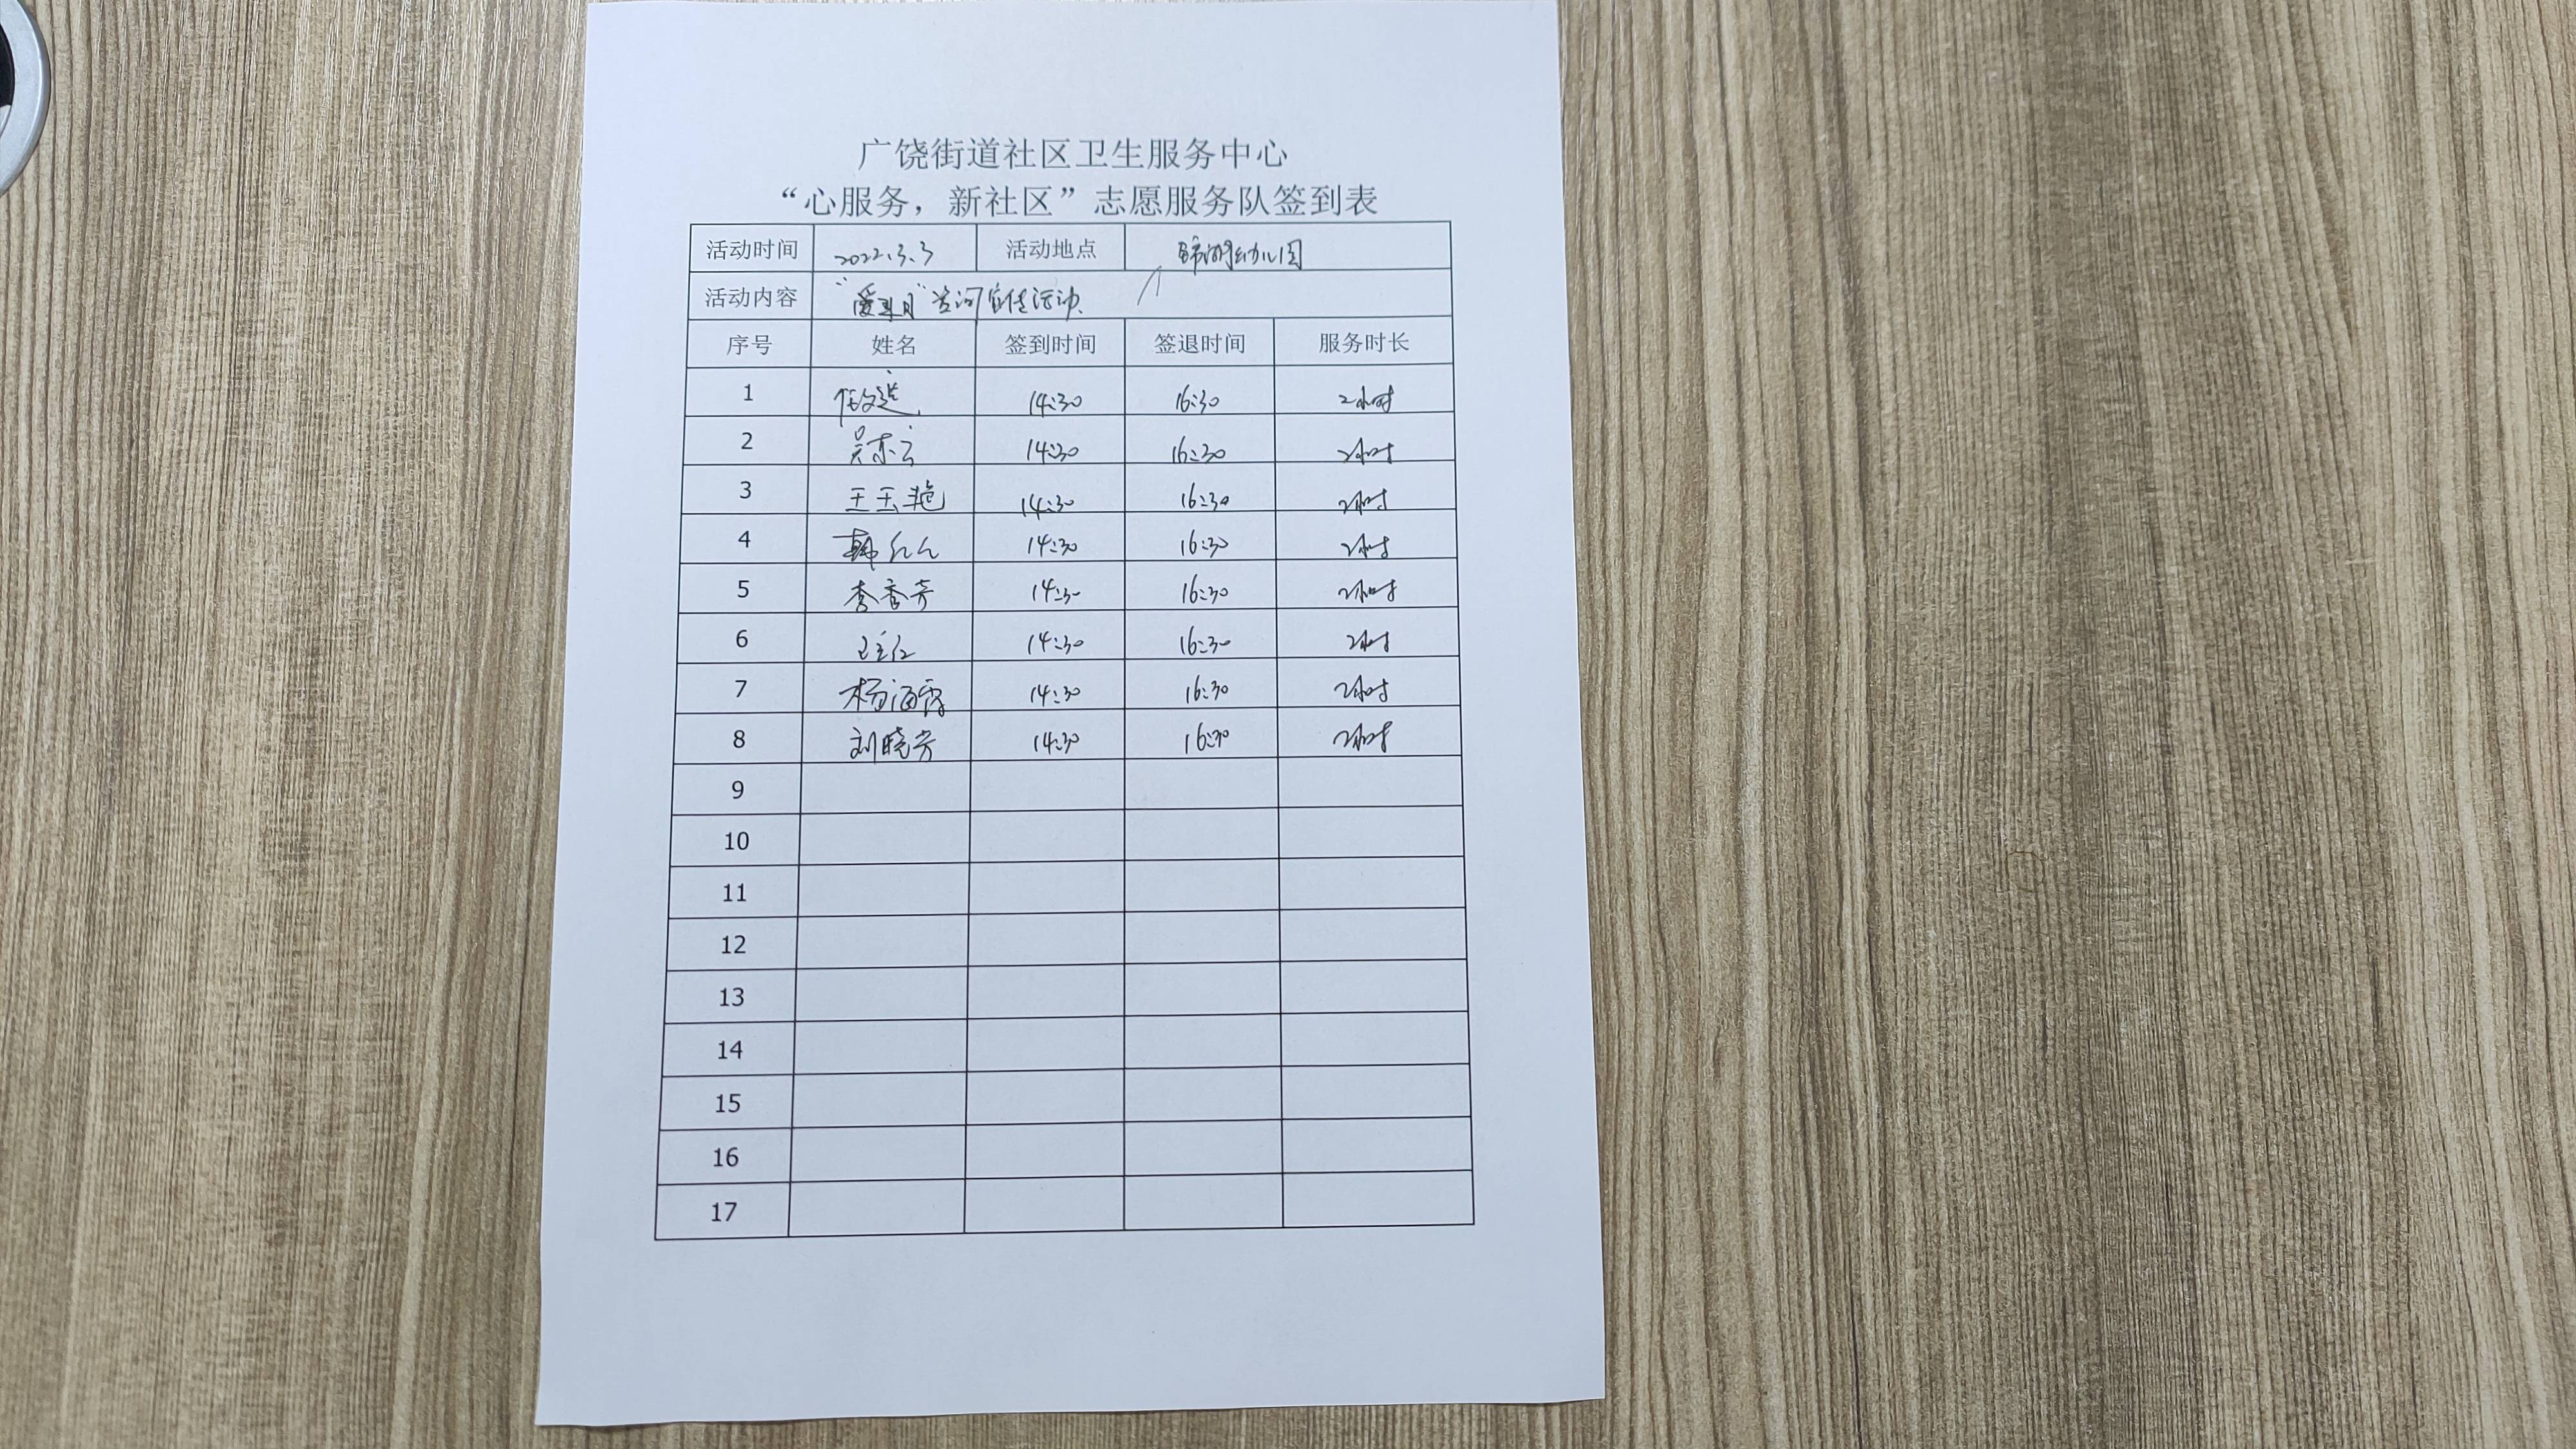 广饶街道社区卫生服务中心
“心服务，新社区”志愿服务队签到表
活动时间 2022.3.3 活动地点 锦湖幼儿园
活动内容 “爱耳日”义诊宣传活动
序号 姓名 签到时间 签退时间 服务时长
1 14:30 16:30 2小时
2 14:30 16:30 2小时
3 王玉艳 14:30 16:30 2小时
4 14:30 16:30 2小时
5 李香芳 14:30 16:30 2小时
6 14:30 16:30 2小时
7 杨海霞 14:30 16:30 2小时
8 刘晓芳 14:30 16:30 2小时
9
10
11
12
13
14
15
16
17